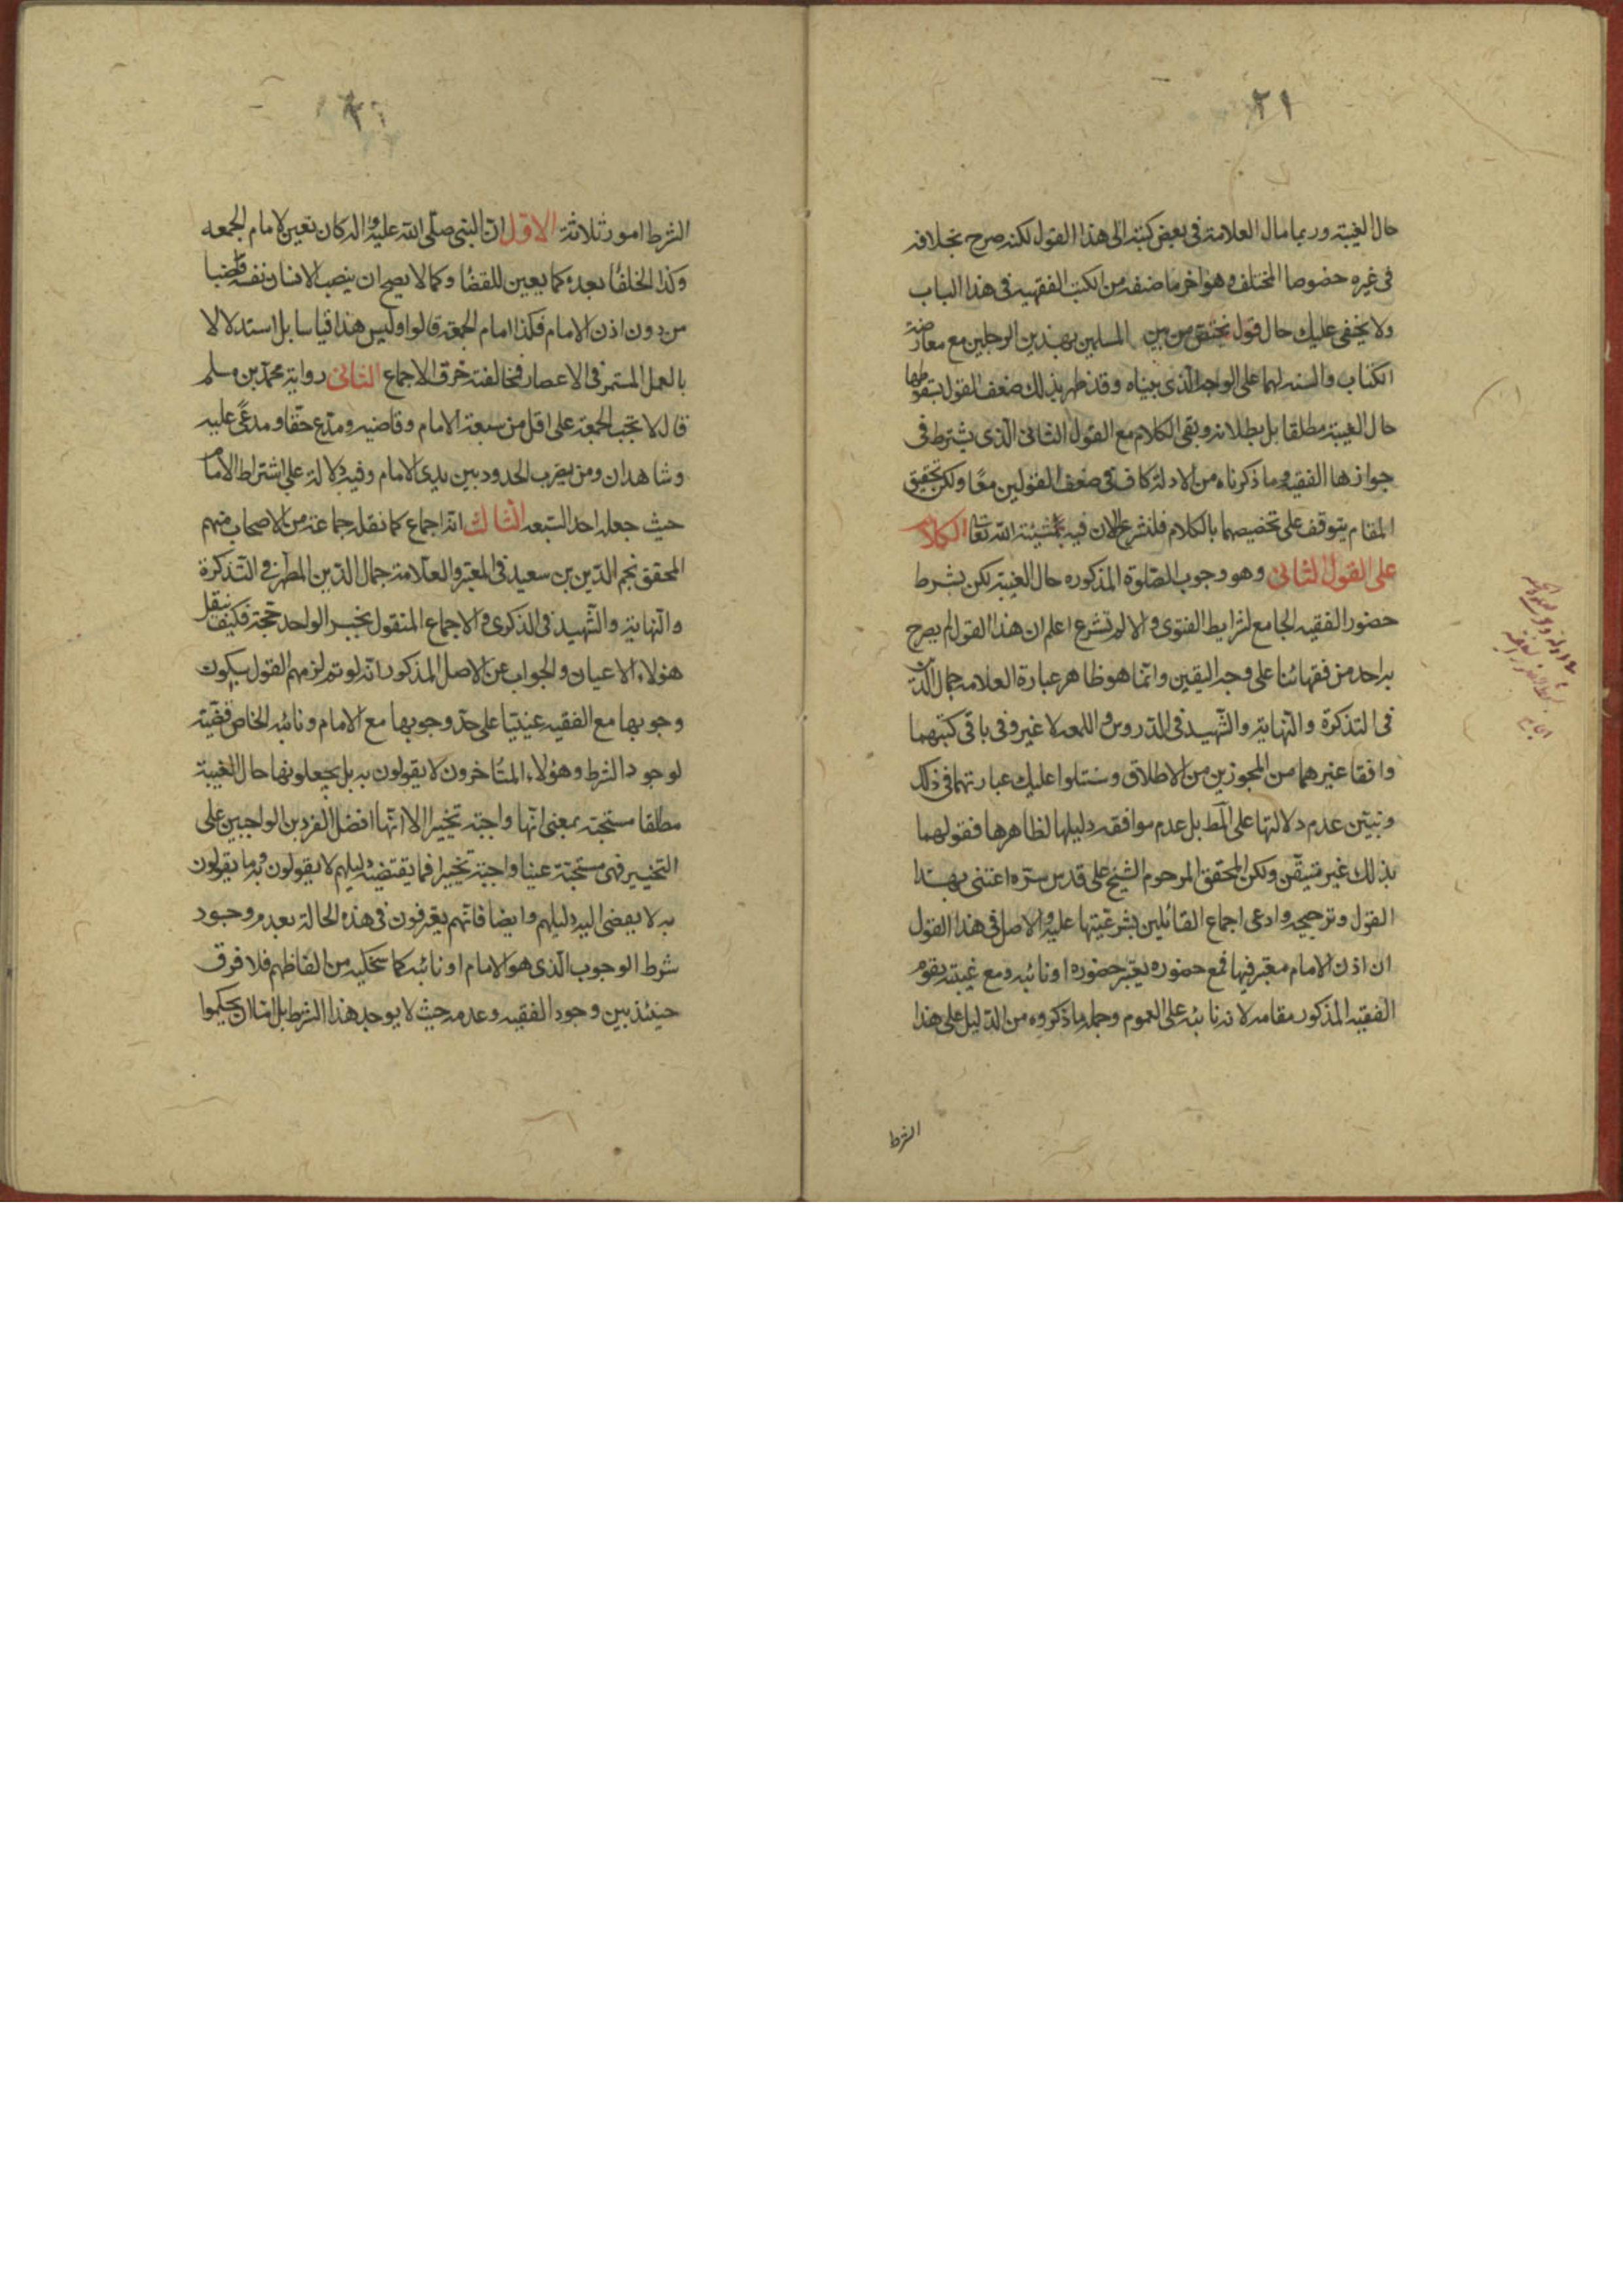 ٢١
حال الغيبة وربما مال العلامة في بعض كتبه الى هذا القول لكنه صرح بخلافه
في غيره خصوصا المختلف وهو اخر ما صنفه من الكتب الفقهيه في هذا الباب
ولا يخفى عليك حال قول يختص من بين المسلمين بهذين الرجلين مع معارضة
الكتاب والسنه لهما على الوجه الذي بيناه وقد ظهر بذلك ضعف القول بسقوطها
حال الغيبة مطلقا بل بطلانه وبقي الكلام مع القول الثاني الذي يشترط في
جوازها الفقيه وما ذكرناه من الادلة كاف في ضعف القولين معًا ولكن تحقيق
المقام يتوقف على تخصيصهما بالكلام فلنشرع الان فيه بمشيئة الله تعا الكلام
على القول الثاني وهو وجوب الصّلوة المذكوره حال الغيبة لكن بشرط
حضور الفقيه الجامع لشرايط الفتوى والا لم تشرع اعلم ان هذا القول لم يصرح
به احد من فقهائنا على وجه اليقين وانما هو ظاهر عبارة العلامه جمال الدّين
في التذكرة والنّهاية والشّهيد في الدّروس واللمعه لا غير وفي باقي كتبهما
وافقا غيرهما من المجوزين من الاطلاق وسنتلوا عليك عبارتهما في ذلك
ونبيّن عدم دلالتها على المط بل عدم موافقه دليلها لظاهرها فقولهما
بذلك غير متيقّن ولكن المحقق المرحوم الشيخ على قدس سرّه اعتنى بهذا
القول وترجيحه وادعى اجماع القائلين بشرعيّتها عليه والاصل في هذا القول
ان اذن الامام معتبر فيها فمع حضوره يعتبر حضوره او نائبه ومع غيبته يقوم
الفقيه المذكور مقامه لانه نائبه على العموم وجملة ما ذكروه من الدّليل على هذا
الشرط
الشرط امور ثلاثة الاوّل انّ النبي صلّى الله عليه واله كان يعين لامام الجمعه
وكذا الخلفا بعده كما يعين للقضا وكما لا يصح ان ينصب الانسان نفسه قاضيا
من دون اذن الامام فكذا امام الجمعة قالوا وليس هذا قياسا بل استدلالا
بالعمل المستمر في الاعصار فمخالفته خرق الاجماع الثاني رواية محمّد بن مسلم
قال لا تجب الجمعة على اقل من سبعة الامام وقاضيه ومدّع حقا ومدعًى عليه
وشاهدان ومن يضرب الحدود بين يدي الامام وفيه دلالة على اشتراط الامام
حيث جعله احد السّبعه الثالث انّه اجماع كما نقله جماعة من الاصحاب منهم
المحقق نجم الدّين بن سعيد في المعتبر والعلّامة جمال الدّين المطهر في التّذكرة
والنّهاية والشّهيد في الذكرى والاجماع المنقول بخبر الواحد حجّة فكيف بنقل
هؤلاء الاعيان والجواب عن الاصل المذكور انّه لو تم لزمهم القول بكون
وجوبها مع الفقيه عينيّا على حدّ وجوبها مع الامام ونائبه الخاص قضيّة
لوجود الشرط وهؤلاء المتاخرون لا يقولون به بل يجعلونها حال الغيبة
مطلقا مستحبّة بمعنى انّها واجبة تخييرا الا انّها افضل الفردين الواجبين على
التخيير فهي مستحبّة عينا واجبة تخييرا فما يقتضيه دليلهم لا يقولون به وما يقولون
به لا يفضى اليه دليلهم وايضا فانّهم يعترفون في هذه الحالة بعدم وجود
شرط الوجوب الّذي هو الامام او نائبه كما سنحكيه من الفاظهم فلا فرق
حينئذ بين وجود الفقيه وعدمه حيث لا يوجد هذا الشرط بل امّا ان يحكموا